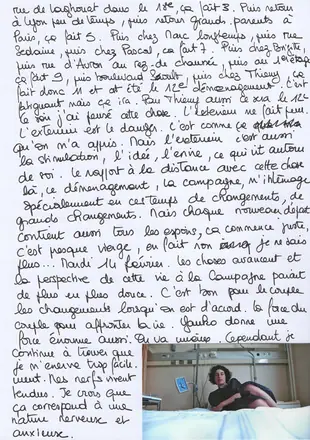 rue de Laghouat dans le 18e, ça fait 3. Puis retour
à Lyon peu de temps, puis retour grands-parents à
Paris, ça fait 5. Puis chez Marc longtemps, puis rue
puis chez Pascal, ça fait 7. Puis chez
puis rue d'Avron au rez-de-chaussée, puis au 1er étage
ça fait 9, puis boulevard Soult, puis chez Thierry ça
fait donc 11 et cet été le 12e déménagement. C'est
paniquant mais ça ira. Pour Thierry aussi ce sera le 12e
là j'ai pensé autre chose. L'extérieur me fait peur.
L'extérieur est le danger. C'est comme ça
qu'on m'a appris. Mais l'extérieur est aussi
la stimulation, l'idée, l'envie, ce qui vit autour
de soi. Le rapport à la distance avec cette chose
là, ce déménagement, la campagne, m'interroge
spécialement en ces temps de changements, de
grands changements. Mais chaque nouveau départ
contient aussi tous les espoirs, ça commence juste,
c'est presque vierge, en fait non je ne sais
plus... Mardi 14 février. Les choses avancent et
la perspective de cette vie à la campagne paraît
de plus en plus douce. C'est bon pour le couple
les changements lorsqu'on est d'accord. La force du
couple pour affronter la vie. donne une
force énorme aussi. On va mieux. Cependant je
continue à trouver que
je m'énerve trop facile-
ment. Mes nerfs vivent
tendus. Je crois que
ça correspond à une
nature nerveuse et
anxieuse.